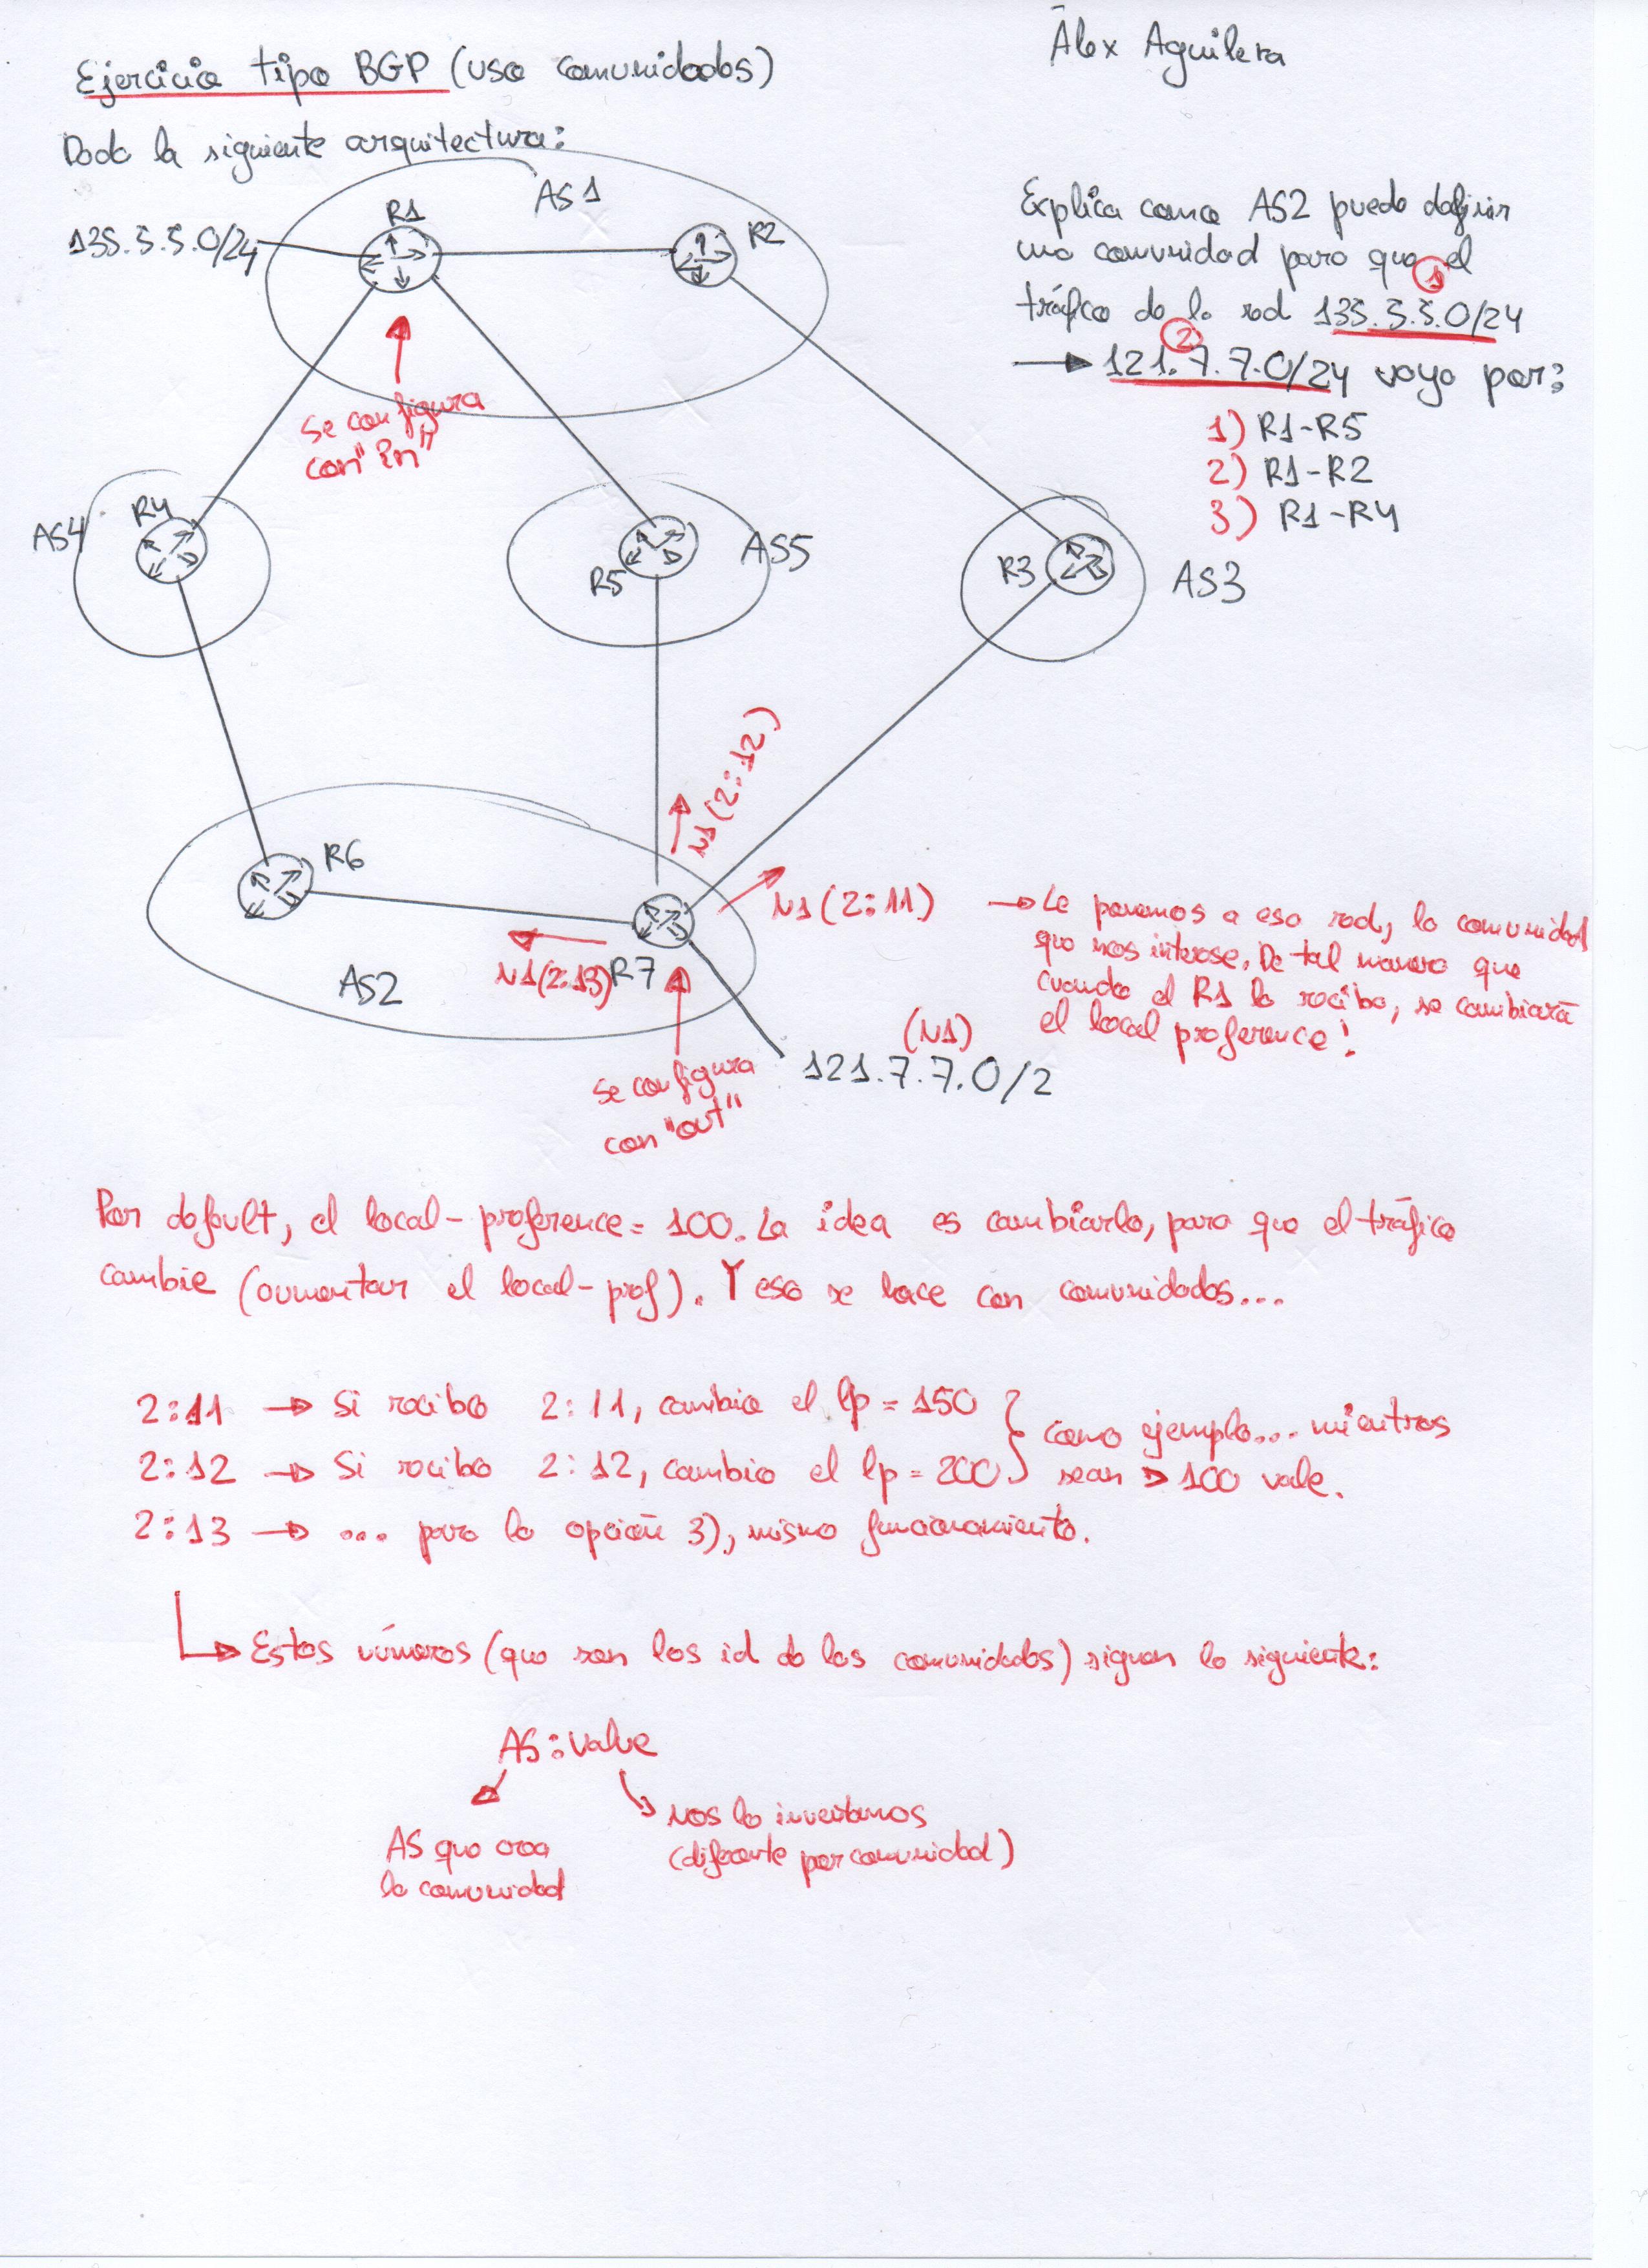 Álex Aguilera
Ejercicio tipo BGP (uso comunidades)
Dada la siguiente arquitectura:
AS1
R1
R2
135.5.5.0/24
Explica como AS2 puede definir
una comunidad para que el
1
tráfico de la red 135.5.5.0/24
2
→ 121.7.7.0/24 vaya por:
1) R1-R5
2) R1-R2
3) R1-R4
Se configura
con "in"
AS4
R4
R5
AS5
R3
AS3
N1 (2:12)
R6
N1 (2:11)
→ Le ponemos a esa red, la comunidad
que nos interese. De tal manera que
cuando el R1 lo reciba, se cambiará
el local preference!
N1(2:13)
R7
AS2
(N1)
121.7.7.0/2
Se configura
con "out"
Por default, el local-preference = 100. La idea es cambiarlo, para que el tráfico
cambie (aumentar el local-pref). Y eso se hace con comunidades...
2:11 → Si recibo 2:11, cambio el lp = 150
2:12 → Si recibo 2:12, cambio el lp = 200
como ejemplo... mientras
sean > 100 vale.
2:13 → ... para la opción 3), mismo funcionamiento.
Estos números (que son los id de las comunidades) siguen lo siguiente:
AS:value
AS que crea
la comunidad
Nos lo inventamos
(diferente por comunidad)